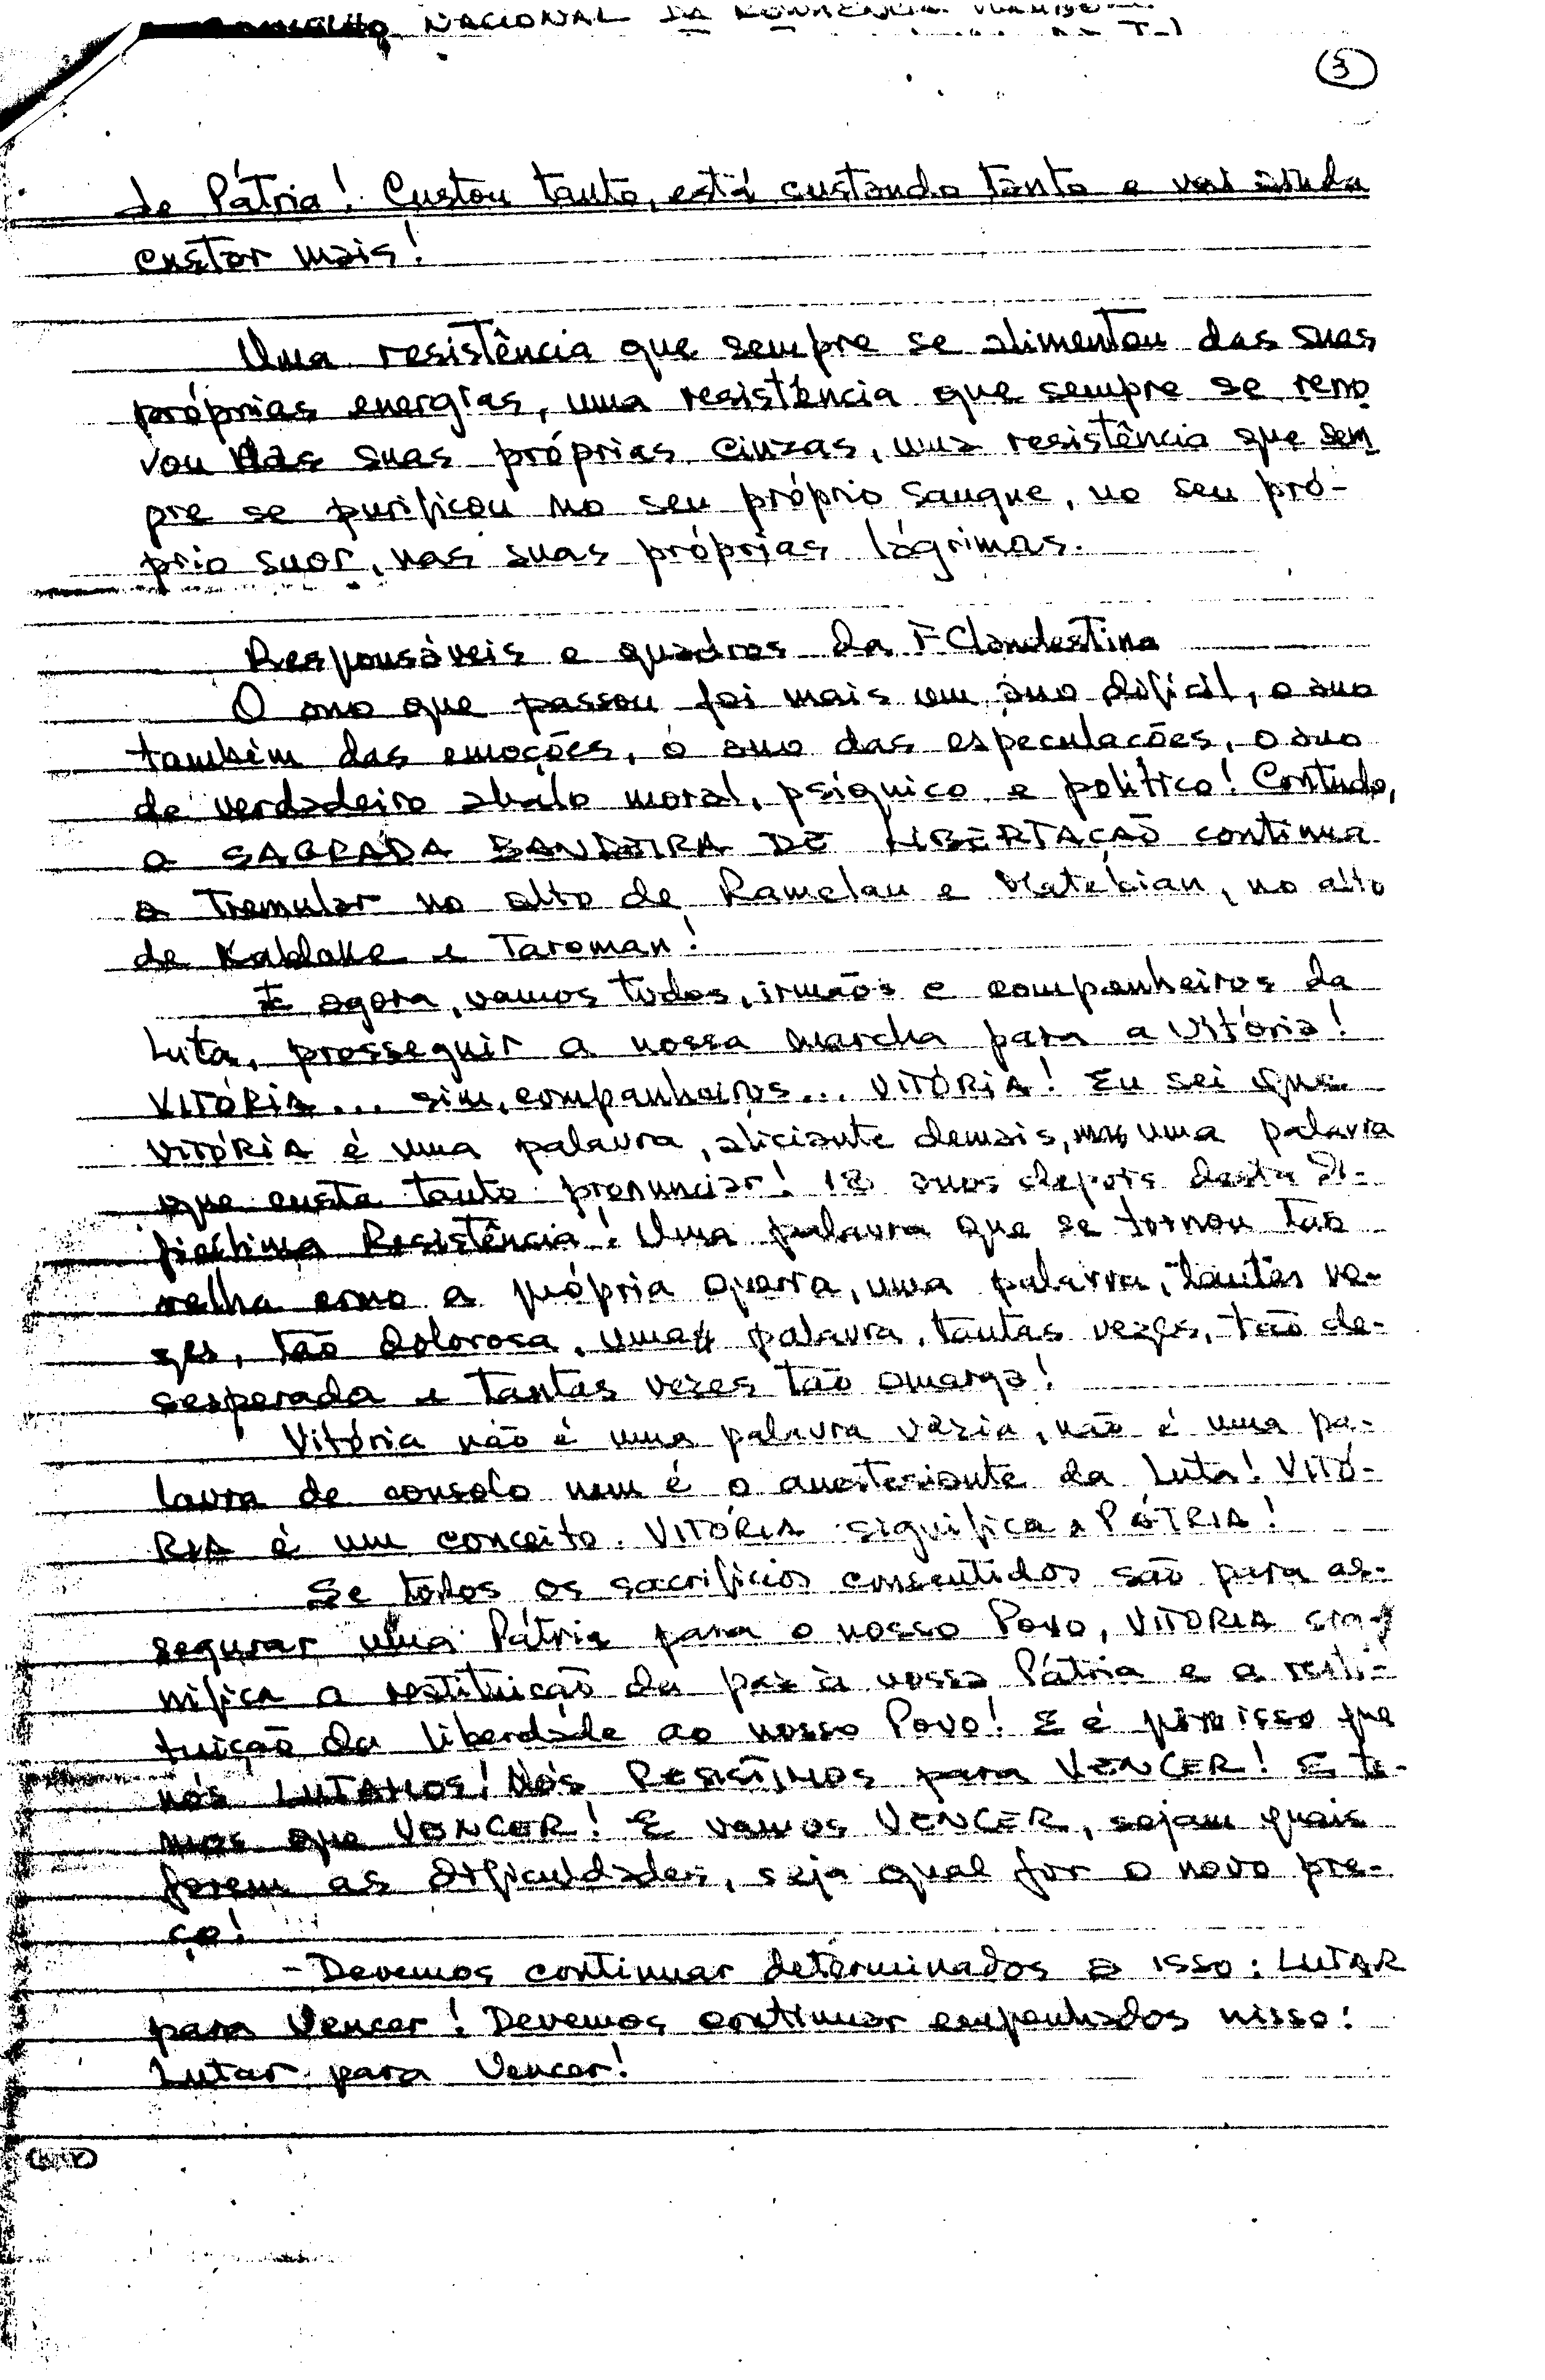 NACIONAL DA
3
de Pátria! Custou tanto, está custando tanto e vai ainda
custar mais!
Uma resistência que sempre se alimentou das suas
próprias energias, uma resistência que sempre se reno
vou das suas próprias cinzas, uma resistência que sem
pre se purificou no seu próprio sangue, no seu pró-
prio suor, nas suas próprias lágrimas.
Responsáveis e quadros da F Clandestina
O ano que passou foi mais um ano difícil, o ano
também das emoções, o ano das especulações, o ano
de verdadeiro abalo moral, psíquico e político! Contudo,
a SAGRADA BANDEIRA DE LIBERTAÇÃO continua
a tremular no alto de Ramelau e Matebian, no alto
de Kablake e Taroman!
E agora, vamos todos, irmãos e companheiros da
Luta, prosseguir a nossa marcha para a Vitória!
VITÓRIA... sim, companheiros... VITÓRIA! Eu sei que
VITÓRIA é uma palavra, aliciante demais, mas uma palavra
que custa tanto pronunciar! 18 anos depois desta di-
ficílima Resistência! Uma palavra que se tornou tão
velha como a própria guerra, uma palavra, tantas ve-
zes, tão dolorosa, uma palavra, tantas vezes, tão de-
sesperada e tantas vezes tão amarga!
Vitória não é uma palavra vazia, não é uma pa-
lavra de consolo nem é o anestesiante da Luta! VITÓ-
RIA é um conceito. VITÓRIA significa a PÁTRIA!
Se todos os sacrifícios consentidos são para as-
segurar uma Pátria para o nosso Povo, VITORIA sig-
nifica a restituição da paz à nossa Pátria e a resti-
tuição da liberdade ao nosso Povo! E é por isso que
nós LUTAMOS! Nós RESISTIMOS para VENCER! E te-
mos que VENCER! E vamos VENCER, sejam quais
forem as dificuldades, seja qual for o novo pre-
ço!
- Devemos continuar determinados a isso: LUTAR
para Vencer! Devemos continuar empenhados nisso:
Lutar para Vencer!